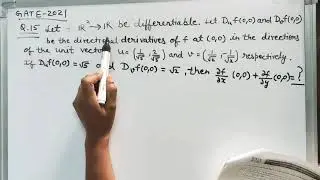 GATE-2021
Q.15 Let f: R² → R be differentiable. Let Duf(0,0) and Dvf(0,0)
be the directional derivatives of f at (0,0) in the directions
of the unit vectors u = (1/√5, 2/√5) and v = (1/√2, -1/√2) respectively.
If Duf(0,0) = √5 and Dvf(0,0) = √2, then ∂f/∂x (0,0) + ∂f/∂y (0,0) = ?